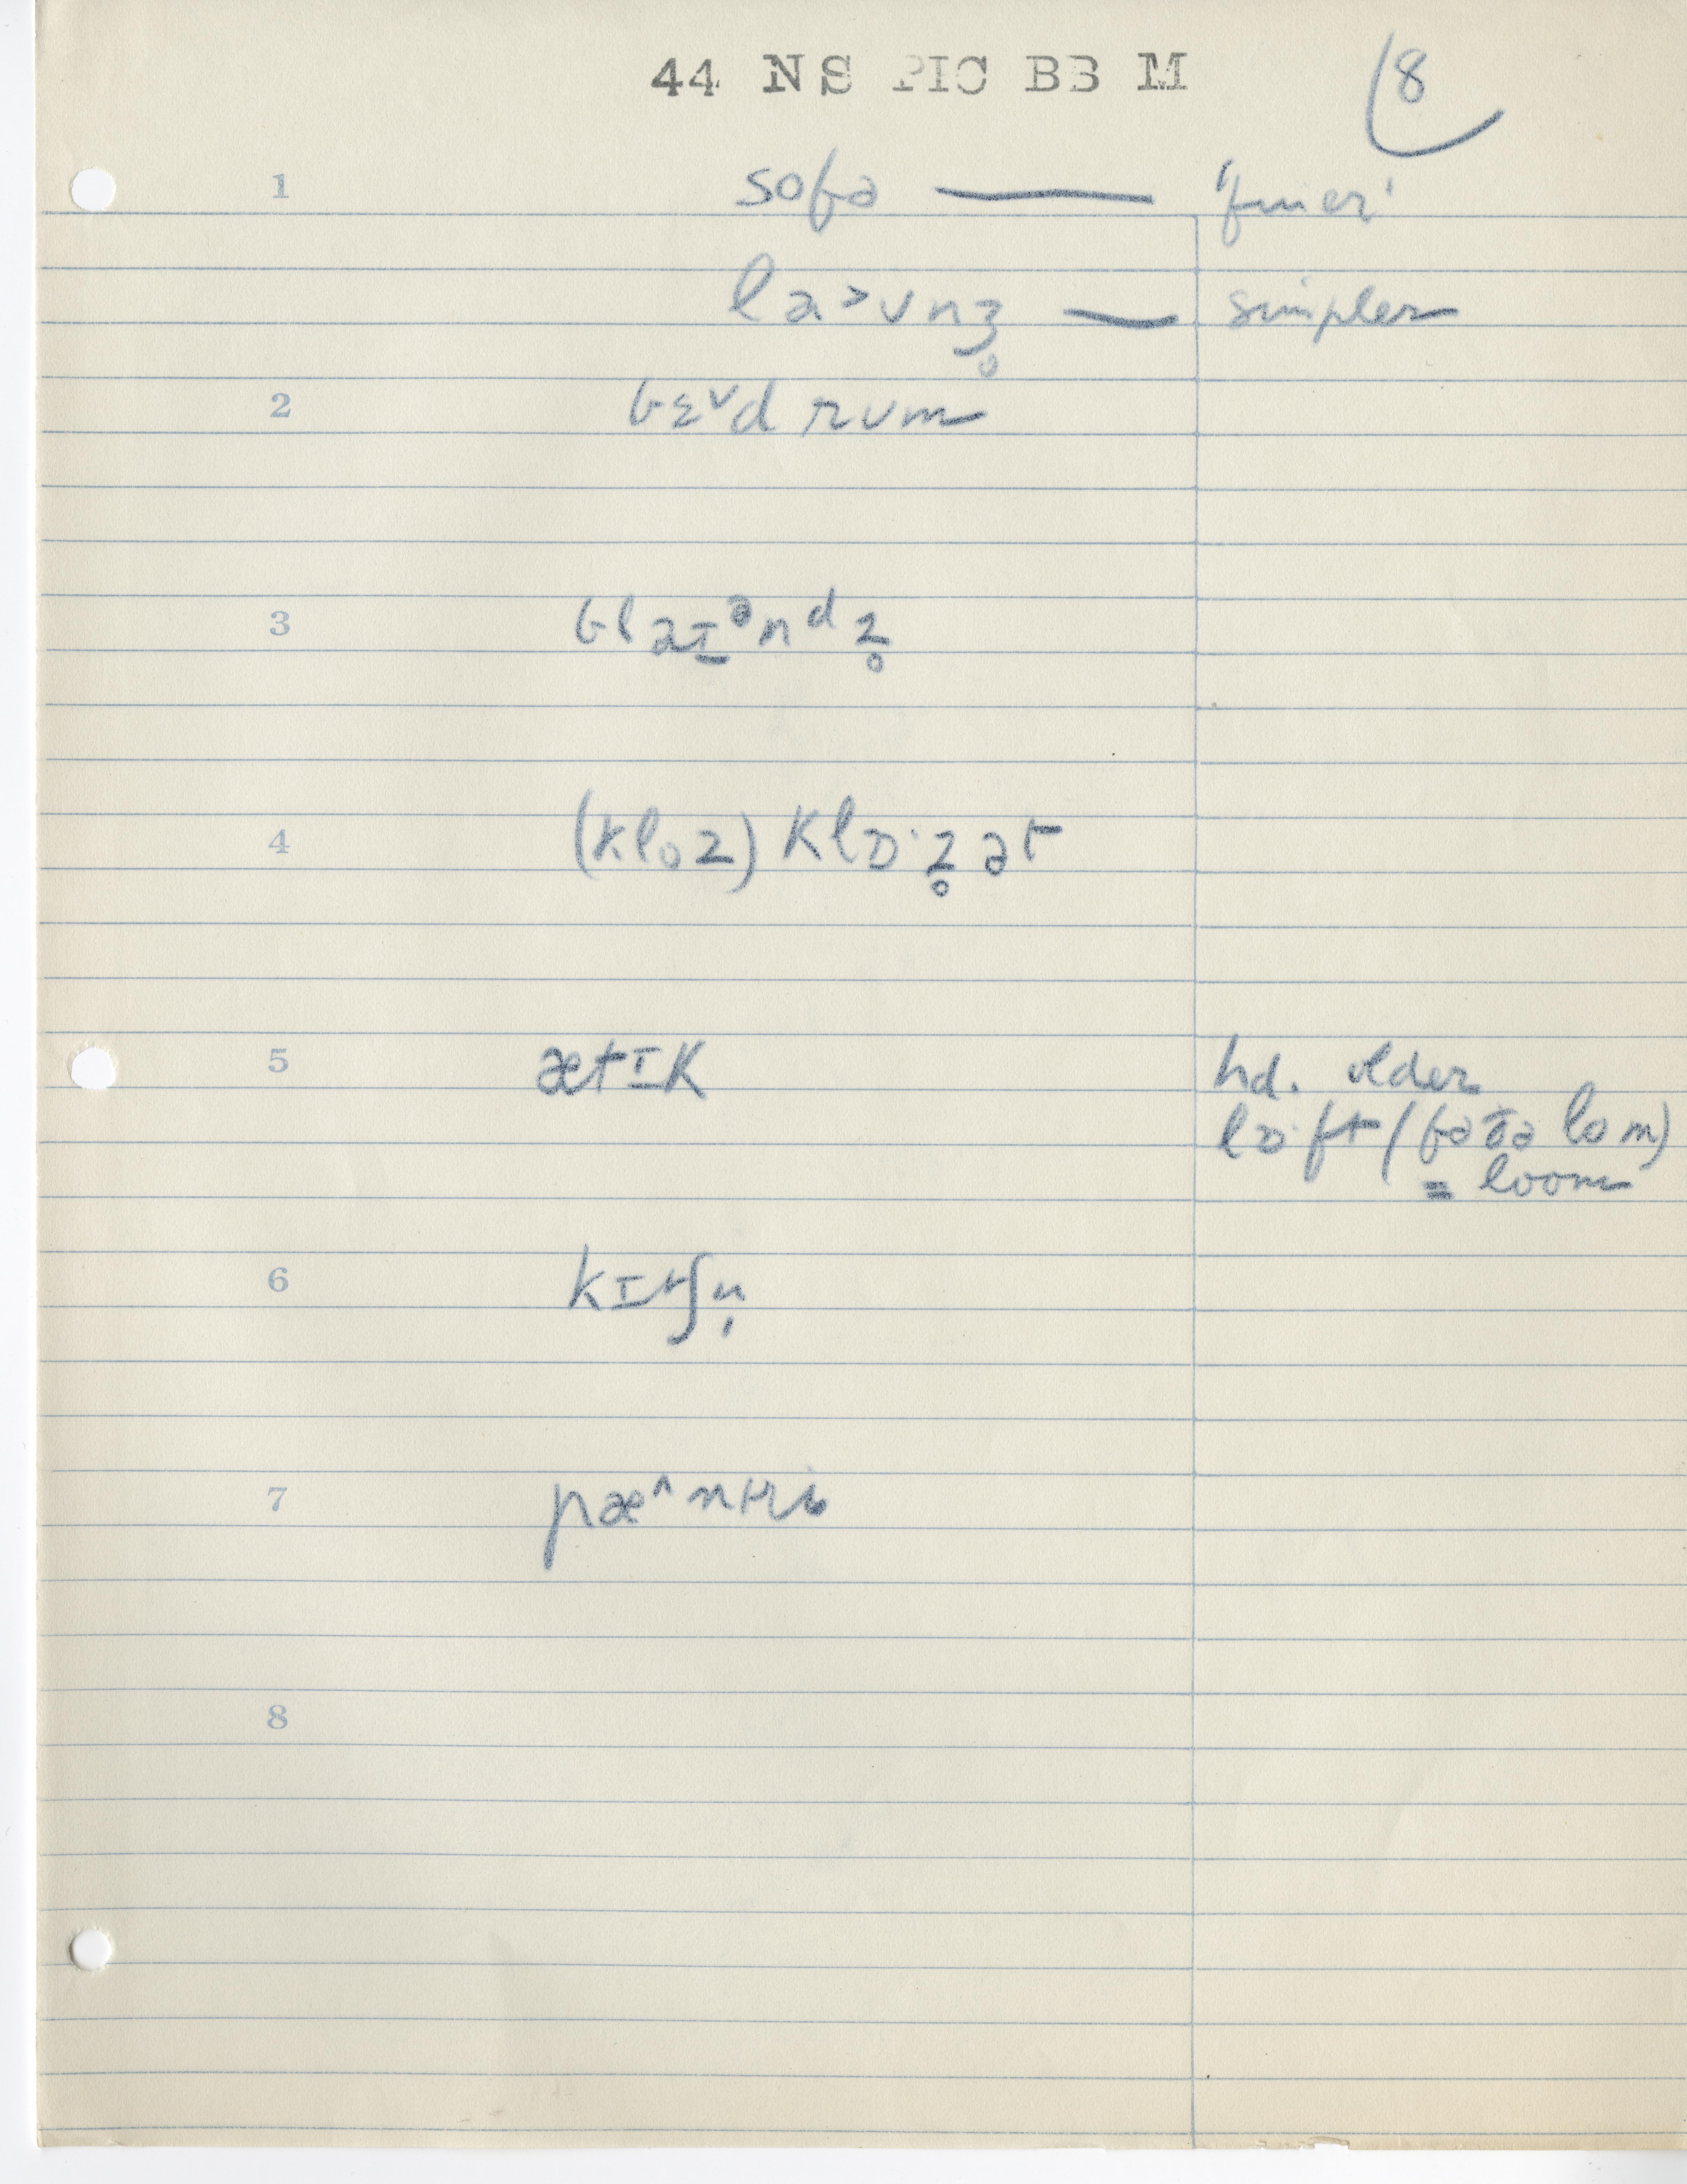 44 NS PIC BB M
8
1 sofə — 'finer'
la>ʊnʒ̥ — simpler
2 bɛ˅d rʊm
3 blaɪᵊnᵈz̥
4 (kloz) klɒ·z̥ət
5 ætɪk hd. older
lɒ·ft (fə ðə lom)
= loom
6 kɪtʃn̩
7 pæ^ntri
8